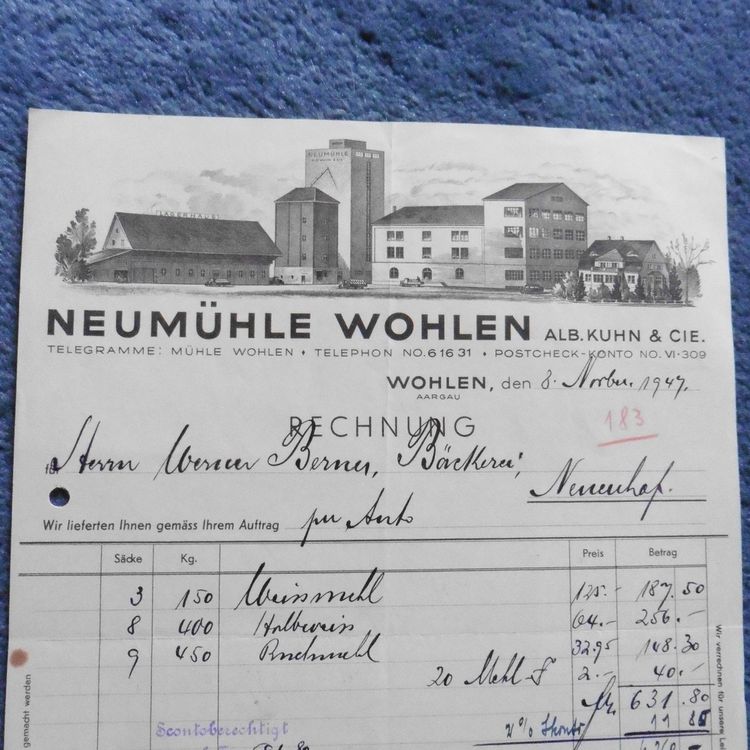 LAGERHAUS
NEUMÜHLE
NEUMÜHLE WOHLEN ALB. KUHN & CIE.
TELEGRAMME: MÜHLE WOHLEN • TELEPHON NO. 61631 • POSTCHECK-KONTO NO. VI·309
WOHLEN, den 8. Novbr. 1947.
AARGAU
RECHNUNG 183
für Herrn Werner Berner, Bäckerei,
Neuenhof.
Wir lieferten Ihnen gemäss Ihrem Auftrag per Auto
Säcke Kg. Preis Betrag
3 150 Weissmehl 125.- 187.50
8 400 Halbweiss 64.- 256.-
9 450 Ruchmehl 32.95 148.30
20 Mehl-S 2.- 40.-
fr. 631.80
Scontoberechtigt 2% Skonto 11 85
gemacht werden
Wir verrechnen für unsere